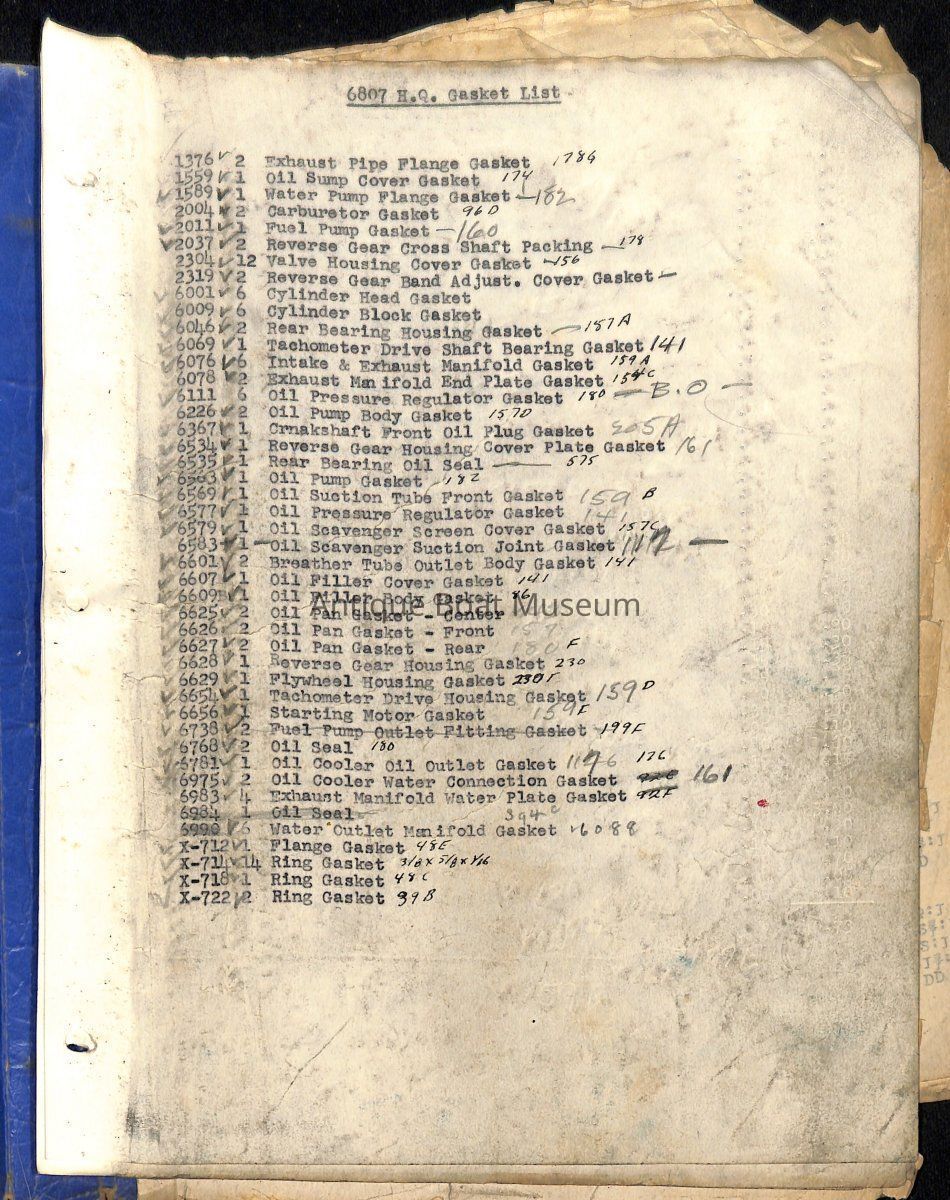 6807 H.Q. Gasket List
1376 ✓ 2 Exhaust Pipe Flange Gasket 178G
1559 ✓ 1 Oil Sump Cover Gasket 174
✓ 1589 ✓ 1 Water Pump Flange Gasket — 182
2004 ✓ 2 Carburetor Gasket 96D
✓ 2011 ✓ 1 Fuel Pump Gasket — 160
✓ 2037 ✓ 2 Reverse Gear Cross Shaft Packing — 178
2304 ✓ 12 Valve Housing Cover Gasket 156
2319 ✓ 2 Reverse Gear Band Adjust. Cover Gasket —
✓ 6001 ✓ 6 Cylinder Head Gasket
6009 ✓ 6 Cylinder Block Gasket
6046 ✓ 2 Rear Bearing Housing Gasket — 157A
6069 ✓ 1 Tachometer Drive Shaft Bearing Gasket 141
6076 ✓ 6 Intake & Exhaust Manifold Gasket 159A
6078 ✓ 2 Exhaust Manifold End Plate Gasket 154C
✓ 6111 6 Oil Pressure Regulator Gasket 180 — B.O —
6226 ✓ 2 Oil Pump Body Gasket 157D
6367 ✓ 1 Crnakshaft Front Oil Plug Gasket 205A
6534 ✓ 1 Reverse Gear Housing Cover Plate Gasket 161
6535 ✓ 1 Rear Bearing Oil Seal — 575
✓ 6563 ✓ 1 Oil Pump Gasket 182
6569 ✓ 1 Oil Suction Tube Front Gasket 159 B
6577 ✓ 1 Oil Pressure Regulator Gasket 141
6579 ✓ 1 Oil Scavenger Screen Cover Gasket 157C
6583 ✓ 1 — Oil Scavenger Suction Joint Gasket —
6601 ✓ 2 Breather Tube Outlet Body Gasket 141
6607 ✓ 1 Oil Filler Cover Gasket 141
6609 ✓ 1 Oil Filler Body Gasket 86
6625 ✓ 2 Oil Pan Gasket - Center
Antique Boat Museum
6626 ✓ 2 Oil Pan Gasket - Front
6627 ✓ 2 Oil Pan Gasket - Rear 180 F
6628 ✓ 1 Reverse Gear Housing Gasket 230
6629 ✓ 1 Flywheel Housing Gasket 230F
6654 ✓ 1 Tachometer Drive Housing Gasket 159 D
6656 ✓ 1 Starting Motor Gasket 159F
6738 ✓ 2 Fuel Pump Outlet Fitting Gasket 199F
6768 ✓ 2 Oil Seal 180
✓ 6781 ✓ 1 Oil Cooler Oil Outlet Gasket 176
6975 ✓ 2 Oil Cooler Water Connection Gasket 161
6983 ✓ 4 Exhaust Manifold Water Plate Gasket 92F
6984 1 Oil Seal 394C
6990 ✓ 6 Water Outlet Manifold Gasket 6088
X-712 ✓ 1 Flange Gasket 48E
X-714 ✓ 14 Ring Gasket 3/8 x 5/8 x 1/16
X-718 ✓ 1 Ring Gasket 48C
X-722 ✓ 2 Ring Gasket 39B